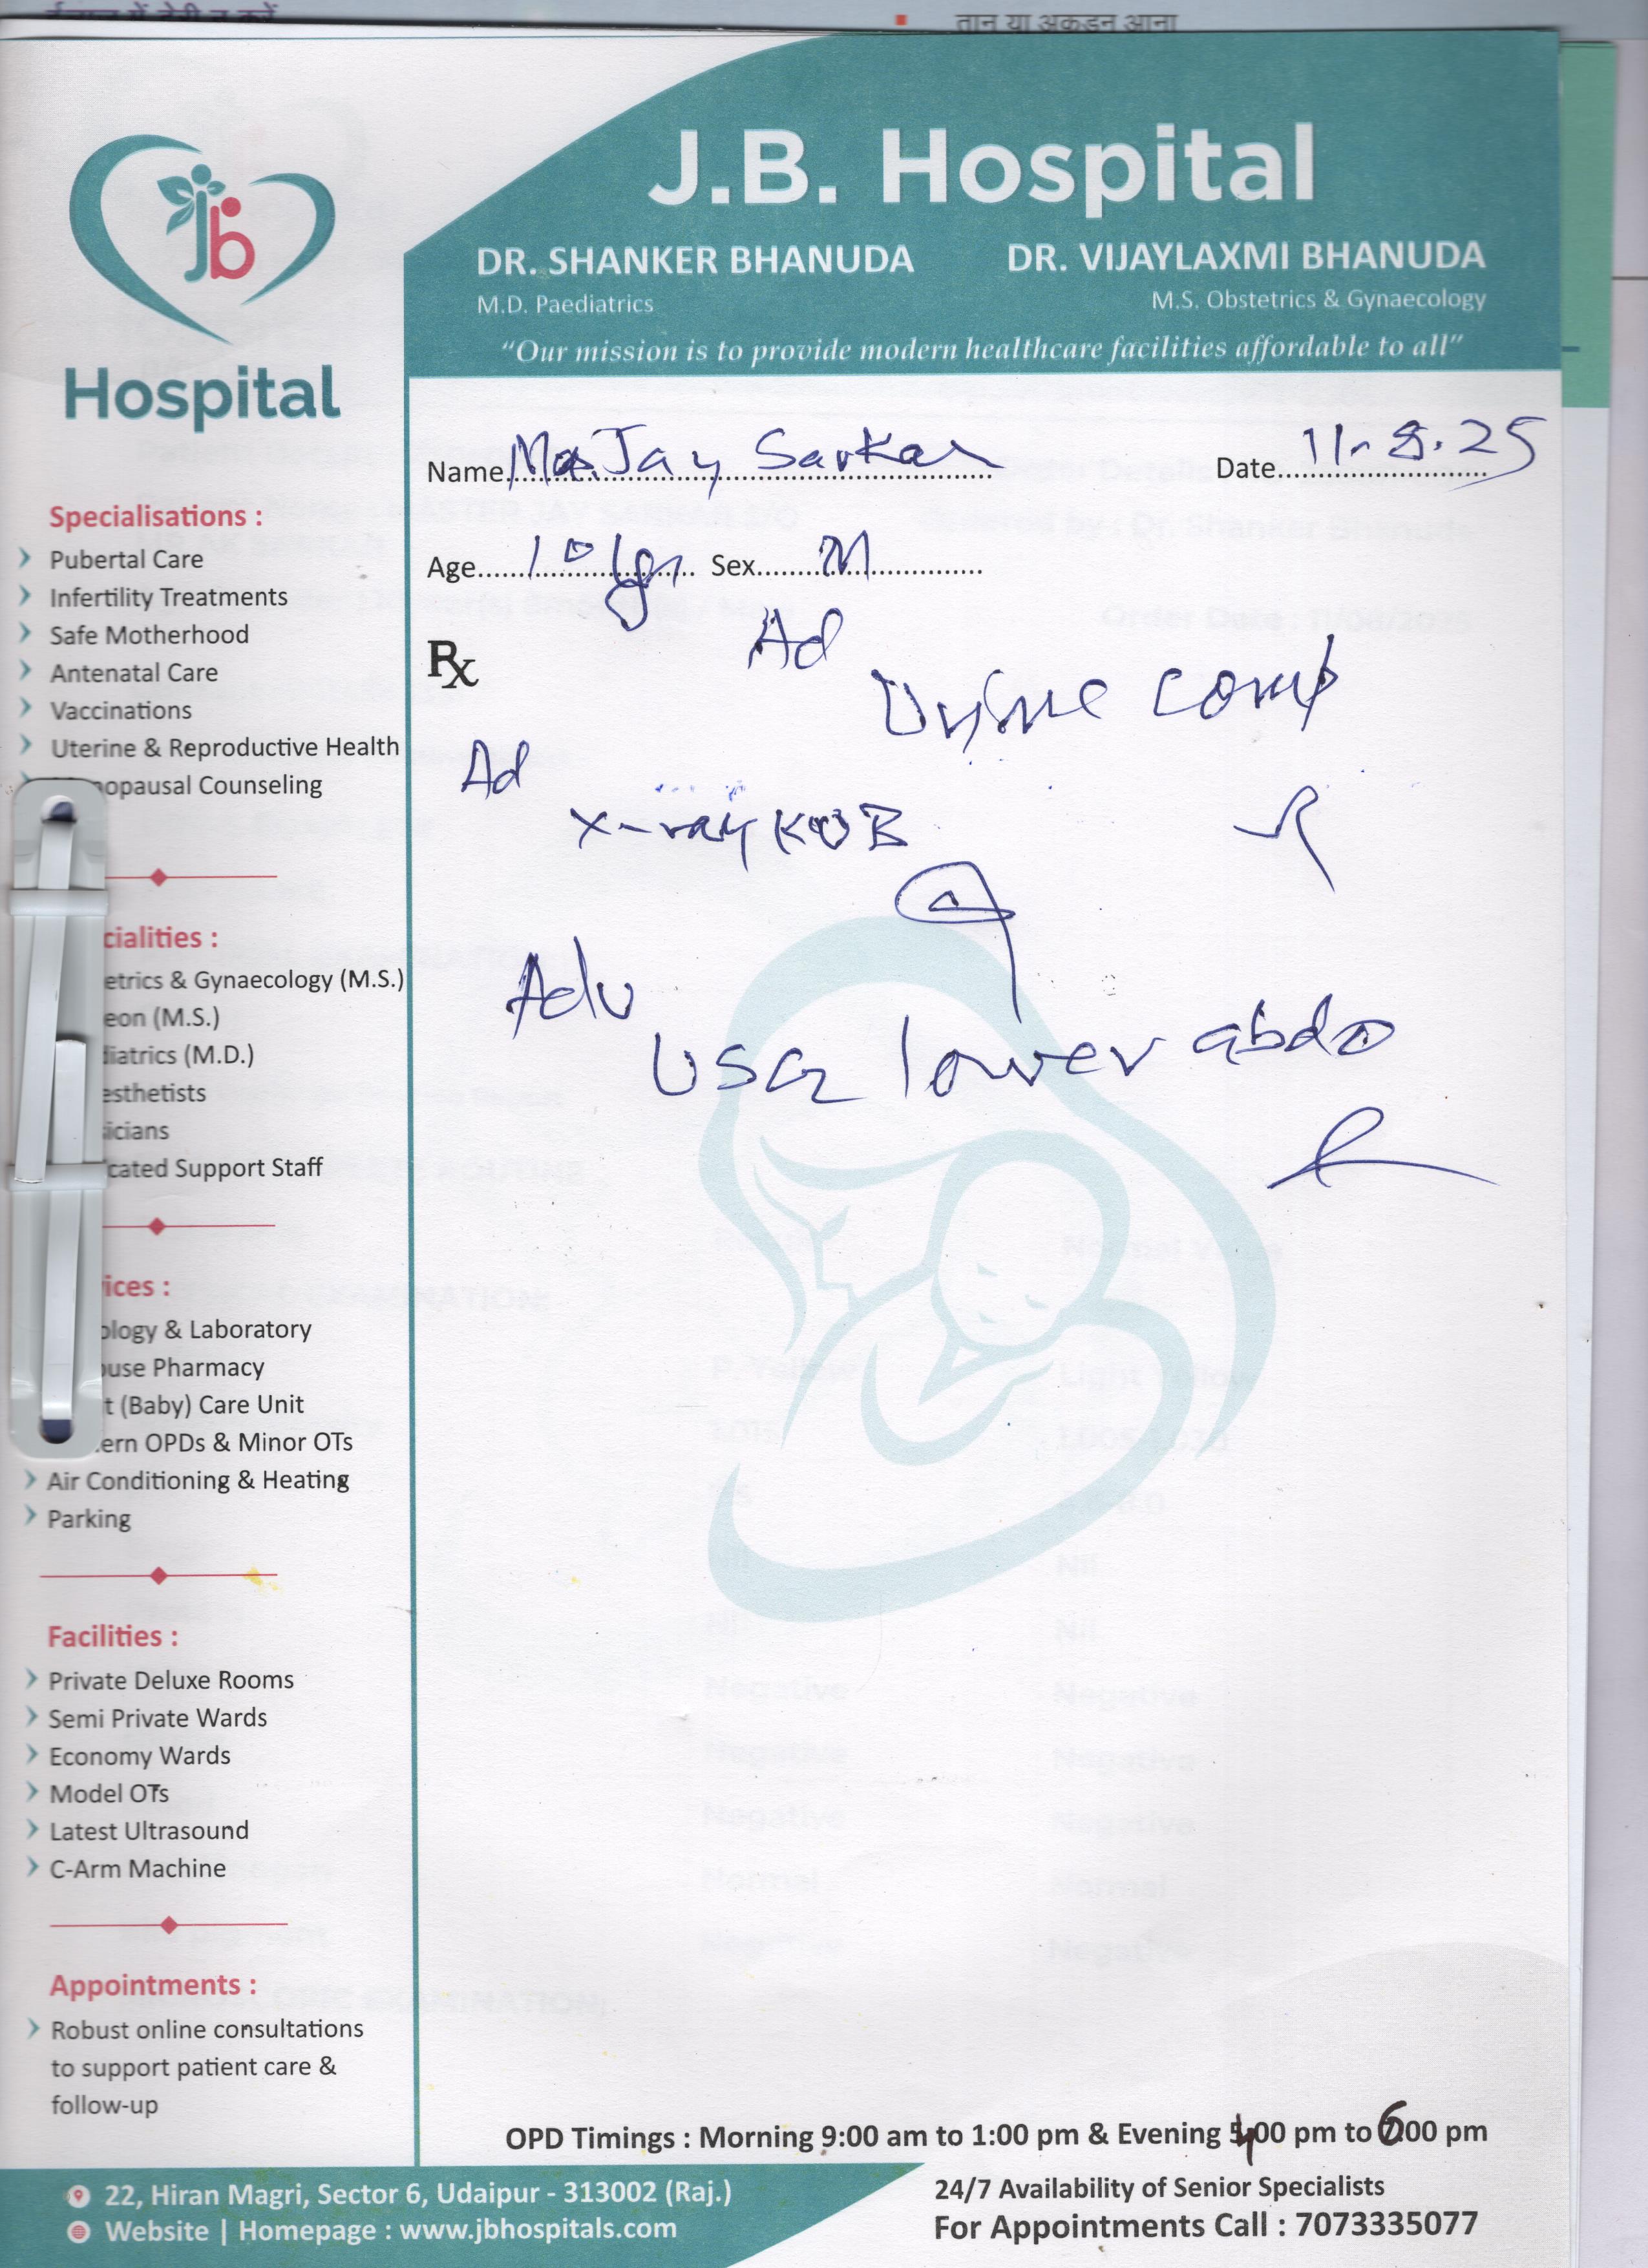 तान या अकडन आना
J.B. Hospital
DR. SHANKER BHANUDA
M.D. Paediatrics
DR. VIJAYLAXMI BHANUDA
M.S. Obstetrics & Gynaecology
"Our mission is to provide modern healthcare facilities affordable to all"
jb
Hospital
Name Mas Jay Sarkar
Date 11-8-25
Age 10 yr Sex M
Rx
Ad
Urine comp
Ad
X-ray KUB
Adv
USG lower abdo
Specialisations :
Pubertal Care
Infertility Treatments
Safe Motherhood
Antenatal Care
Vaccinations
Uterine & Reproductive Health
opausal Counseling
cialities :
etrics & Gynaecology (M.S.)
eon (M.S.)
diatrics (M.D.)
esthetists
icians
cated Support Staff
ices :
ology & Laboratory
ouse Pharmacy
t (Baby) Care Unit
ern OPDs & Minor OTs
Air Conditioning & Heating
Parking
Facilities :
Private Deluxe Rooms
Semi Private Wards
Economy Wards
Model OTs
Latest Ultrasound
C-Arm Machine
Appointments :
Robust online consultations
to support patient care &
follow-up
OPD Timings : Morning 9:00 am to 1:00 pm & Evening 4:00 pm to 6:00 pm
22, Hiran Magri, Sector 6, Udaipur - 313002 (Raj.)
Website | Homepage : www.jbhospitals.com
24/7 Availability of Senior Specialists
For Appointments Call : 7073335077